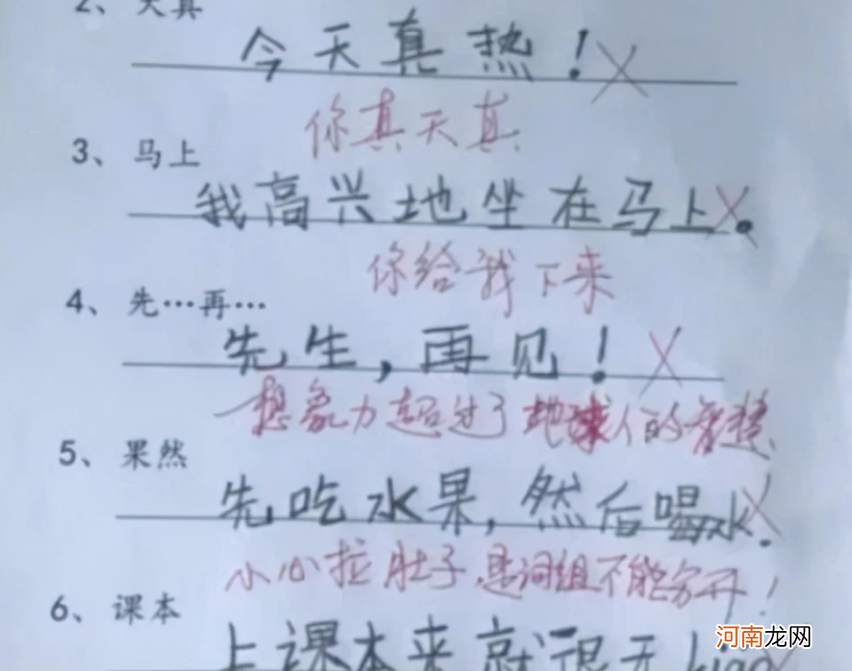 2、天真
今天真热！
你真天真
3、马上
我高兴地坐在马上。
你给我下来
4、先…再…
先生，再见！
想象力超过了地球人的智慧
5、果然
先吃水果，然后喝水.
小心拉肚子，是词组不能分开！
6、课本
上课本来就很无
河南龙网